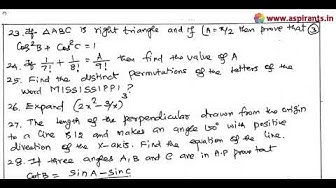 www.aspirants.in
23. If △ABC is right triangle and if ∠A = π/2 then prove that ③
cos²B + cos²C = 1
24. If 1/7! + 1/8! = A/9! then find the value of A
25. Find the distinct permutations of the letters of the
word MISSISSIPPI ?
26. Expand (2x² - 3/x)³
27. The length of the perpendicular drawn from the origin
to a line is 12 and makes an angle 150° with positive
direction of the x-axis. Find the equation of the line.
28. If three angles A, B and C are in A.P prove that
cotB = sinA - sinC